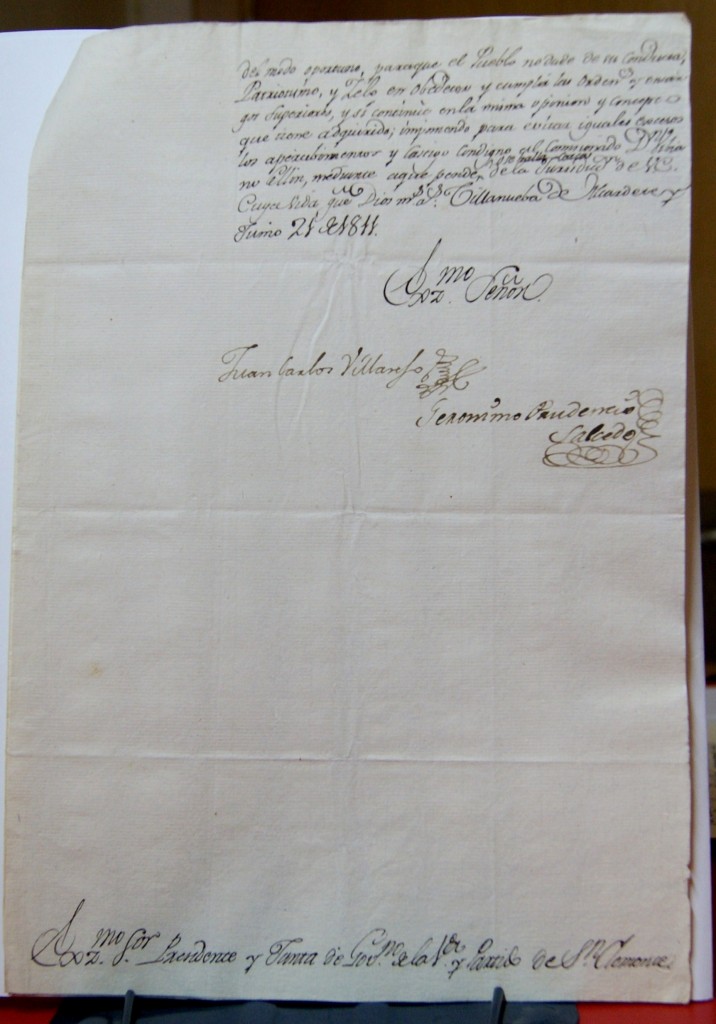 del modo oportuno, paraque el Pueblo no dude de su Conducta,
Patriotismo, y Zelo en obedecer y cumplir las Orden.s y encar
gos Superiores, y sí continúe en la misma opinion y concepto
que tiene adquirido; imponiendo para evitar iguales excesos
los apercibimientos y Castigo Condigno al Comisionado D.n
no Ellin, mediante a que pende de la Jurisdic.n de V.E.
Cuya Vida gu.e Dios m.s a.s Villanueba de Alcardete y
Junio 21 de 1811.
Exz.mo Señor.
Juan Carlos Villarejo
Geronimo Prudencio
Salcedo
Exz.mo S.or Presidente y Junta de Gov.no de la V.a y Partido de S.n Clemente